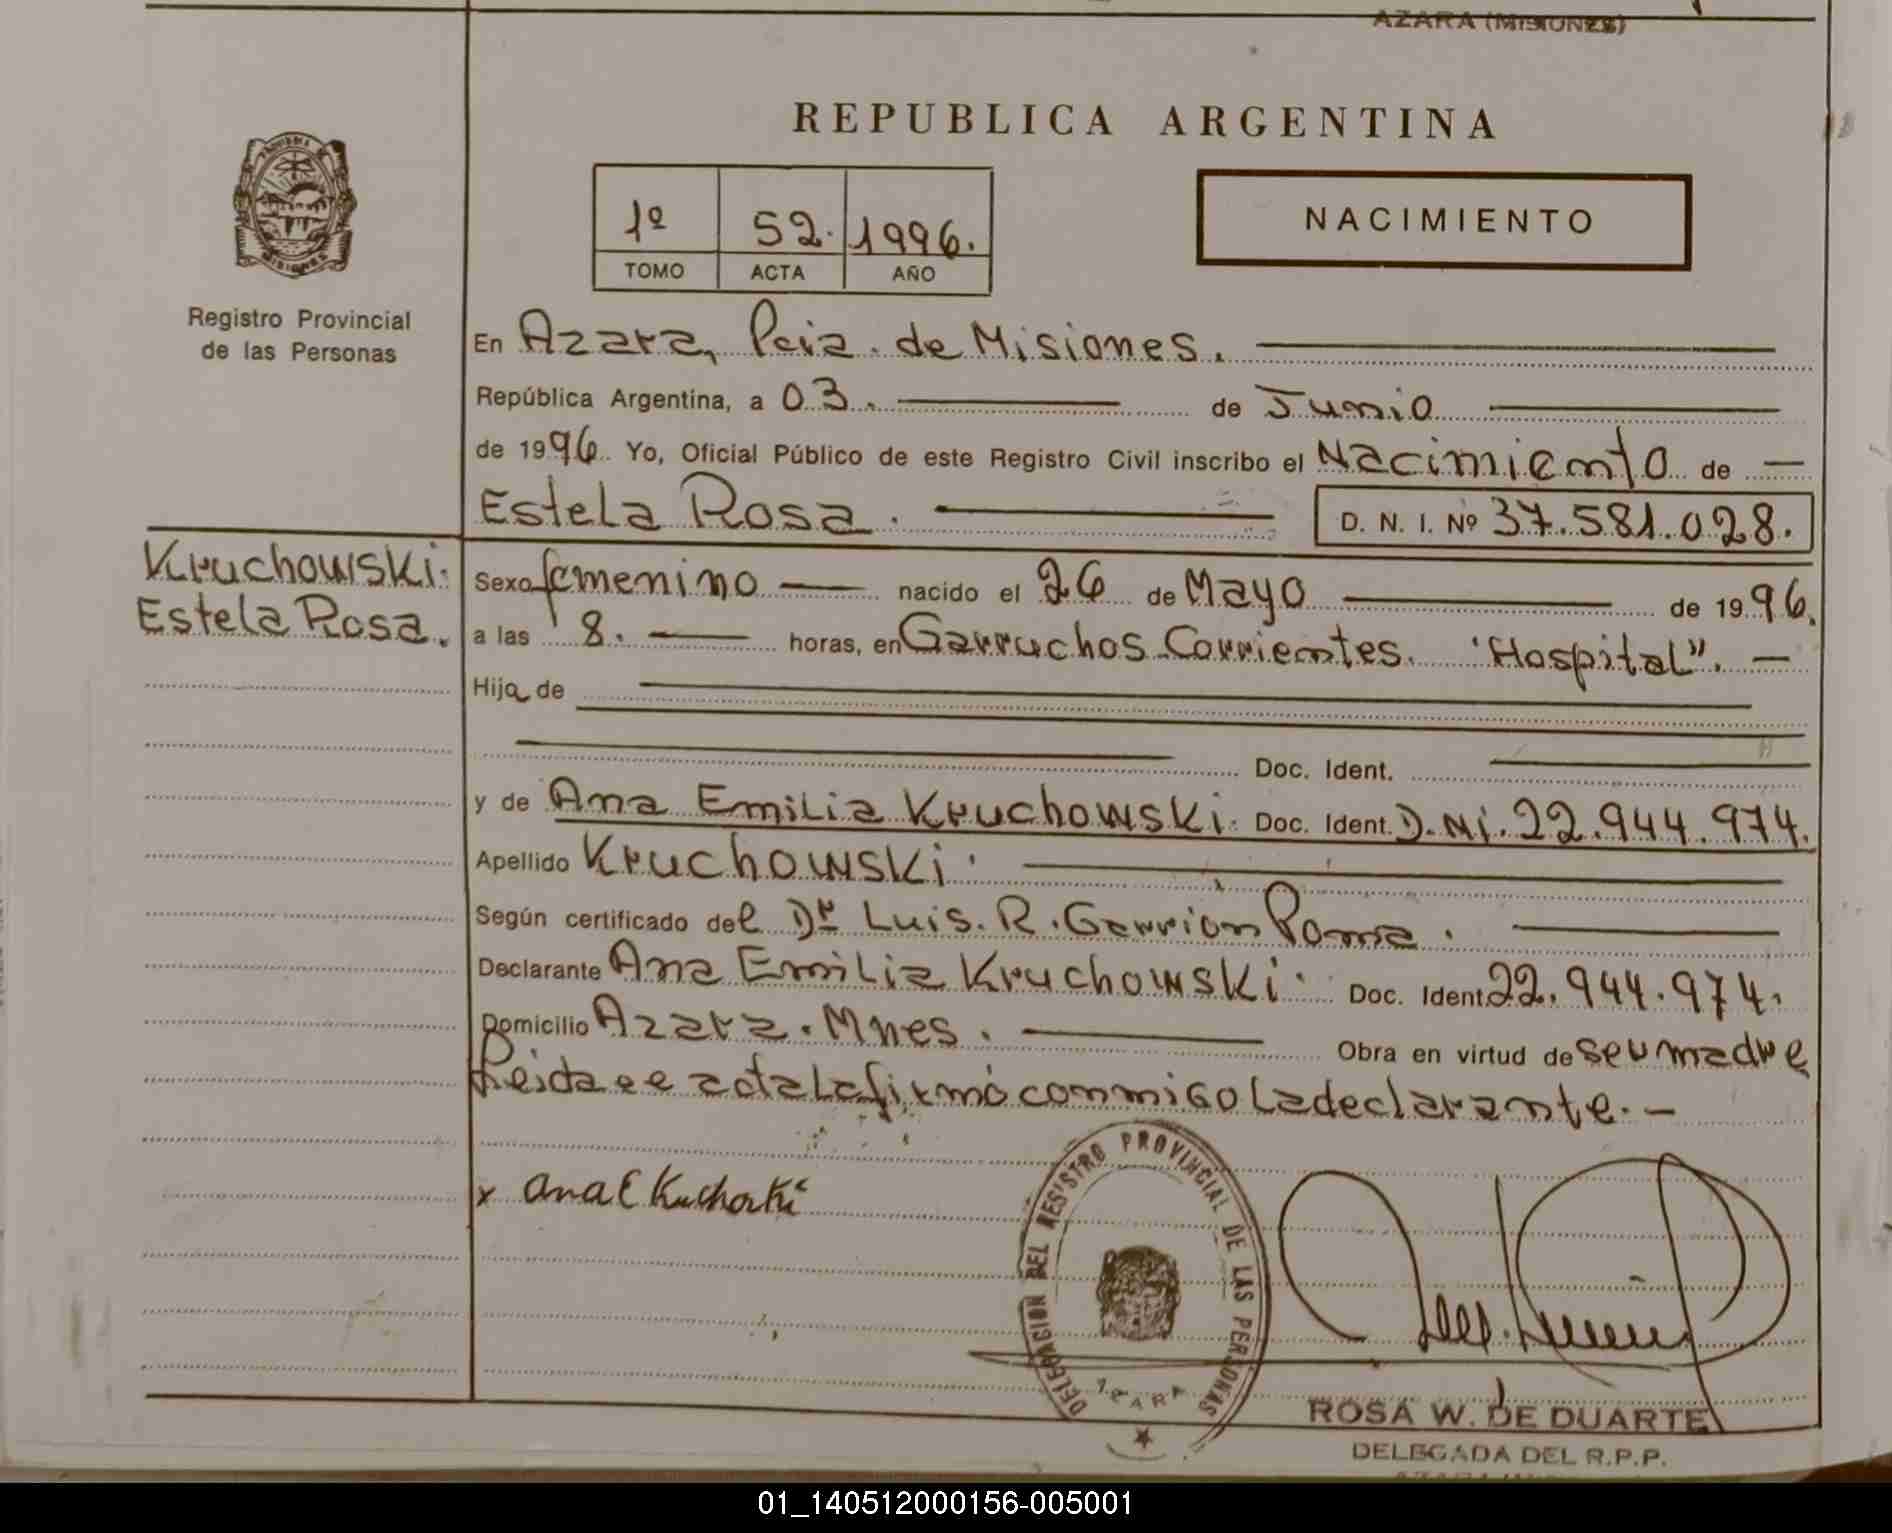 AZARA (MISIONES)
REPUBLICA ARGENTINA
1º 52. 1996.
TOMO ACTA AÑO
NACIMIENTO
MISIONES
Registro Provincial
de las Personas
En Azara, Pcia. de Misiones.
República Argentina, a 03. de Junio
de 1996 Yo, Oficial Público de este Registro Civil inscribo el Nacimiento de
Estela Rosa. D. N. I. Nº 37.581.028.
Kruchowski.
Estela Rosa.
Sexo femenino nacido el 26 de Mayo de 1996.
a las 8. horas, en Garruchos Corrientes. "Hospital".
Hija de
Doc. Ident.
y de Ana Emilia Kruchowski. Doc. Ident. D.Ni. 22.944.974.
Apellido Kruchowski.
Según certificado del Dr Luis. R. Garrion Poma.
Declarante Ana Emilia Kruchowski. Doc. Ident. 22.944.974.
Domicilio Azara. Mnes. Obra en virtud de seu madre
Leida ee acta la firmó conmigo la declarante.
x Ana E
DELEGACION DEL REGISTRO PROVINCIAL DE LAS PERSONAS
AZARA
ROSA W. DE DUARTE
DELEGADA DEL R.P.P.
01_140512000156-005001